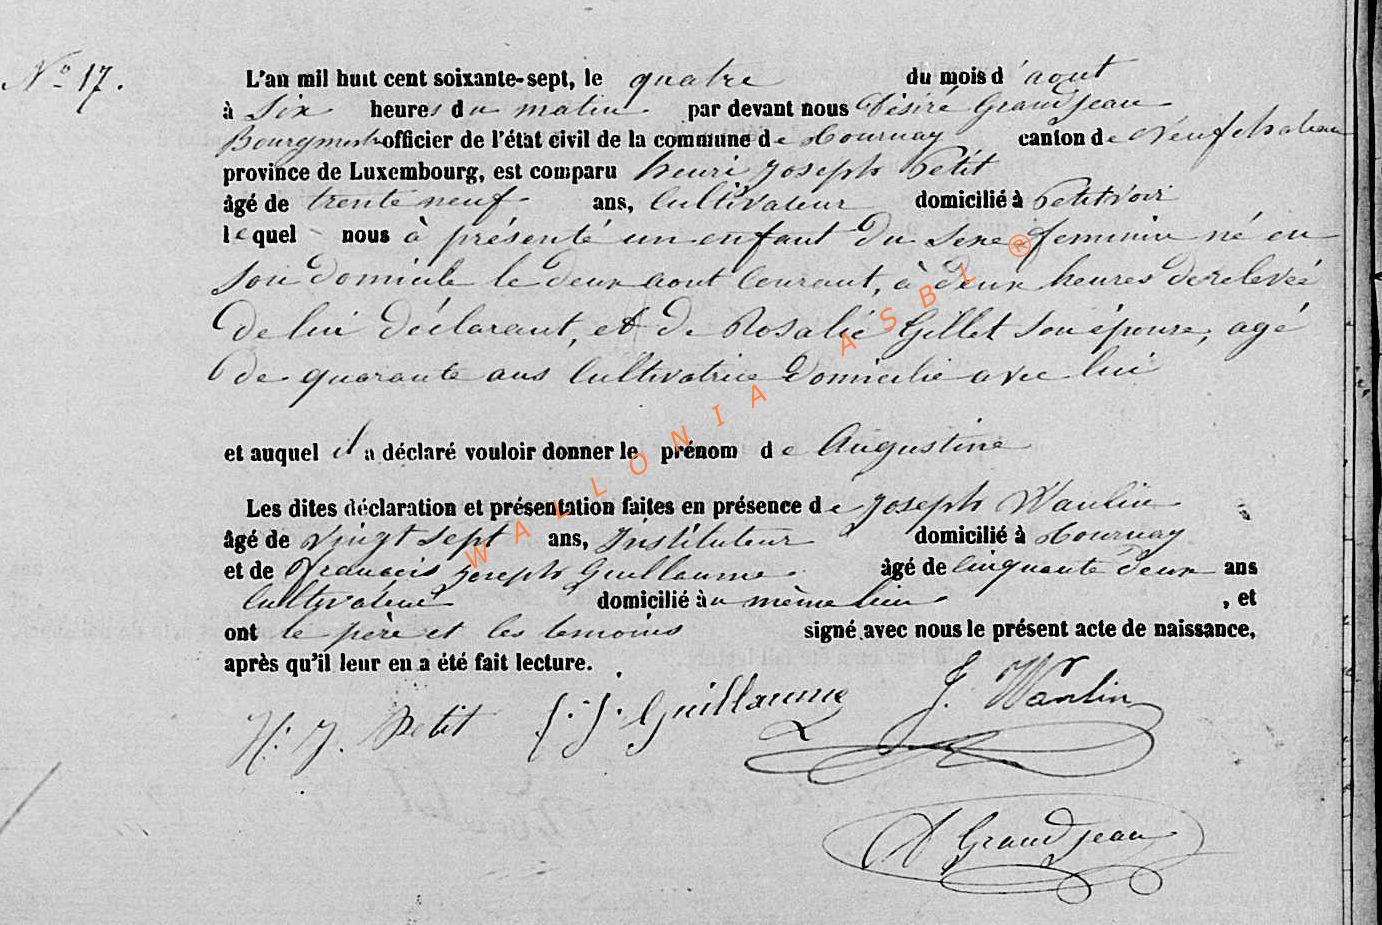 N° 17.
L'an mil huit cent soixante-sept, le quatre du mois d'aout
à Six heures du matin par devant nous Désiré Grandjean
Bourgmestre officier de l'état civil de la commune de Tournay canton de Neufchateau
province de Luxembourg, est comparu henri Joseph Petit
âgé de trente neuf ans, Cultivateur domicilié à Petitvoir
lequel nous à présenté un enfant du Sexe feminin né en
son domicile le deux aout Courant, à deux heures de relevée
de lui déclarant, et de Rosalie Gillet son épouse, agé
de quarante ans Cultivatrice domicilié avec lui
et auquel il a déclaré vouloir donner le prénom de Augustine
Les dites déclaration et présentation faites en présence de Joseph Wanlin
âgé de Vingt Sept ans, Instituteur domicilié à Tournay
et de francois joseph Guillaume âgé de Cinquante deux ans
Cultivateur domicilié àu même lieu , et
ont le père et les temoins signé avec nous le présent acte de naissance,
après qu'il leur en a été fait lecture.
H. J. Petit f. J. Guillaume J. Wanlin
D Grandjean
WALLONIA ASBL ®